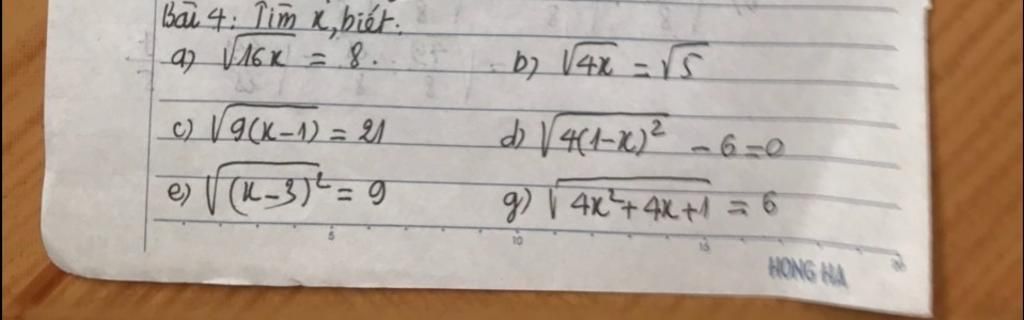 Bài 4: Tìm x, biết.
a) √16x = 8. b) √4x = √5
c) √9(x-1) = 21 d) √4(1-x)² - 6=0
e) √(x-3)² = 9 g) √4x²+4x+1 = 6
5 10 15
HONG HA